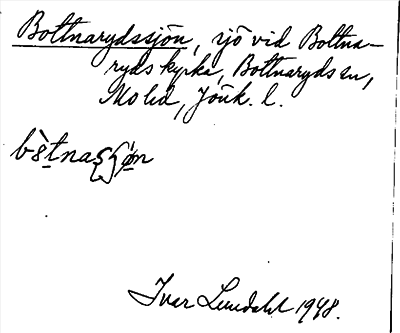 Bottnarydssjön, sjö vid Bottna-
ryds kyrka, Bottnaryds sn,
Mo hd, Jönk. l.
Ivar Lundahl 1948.